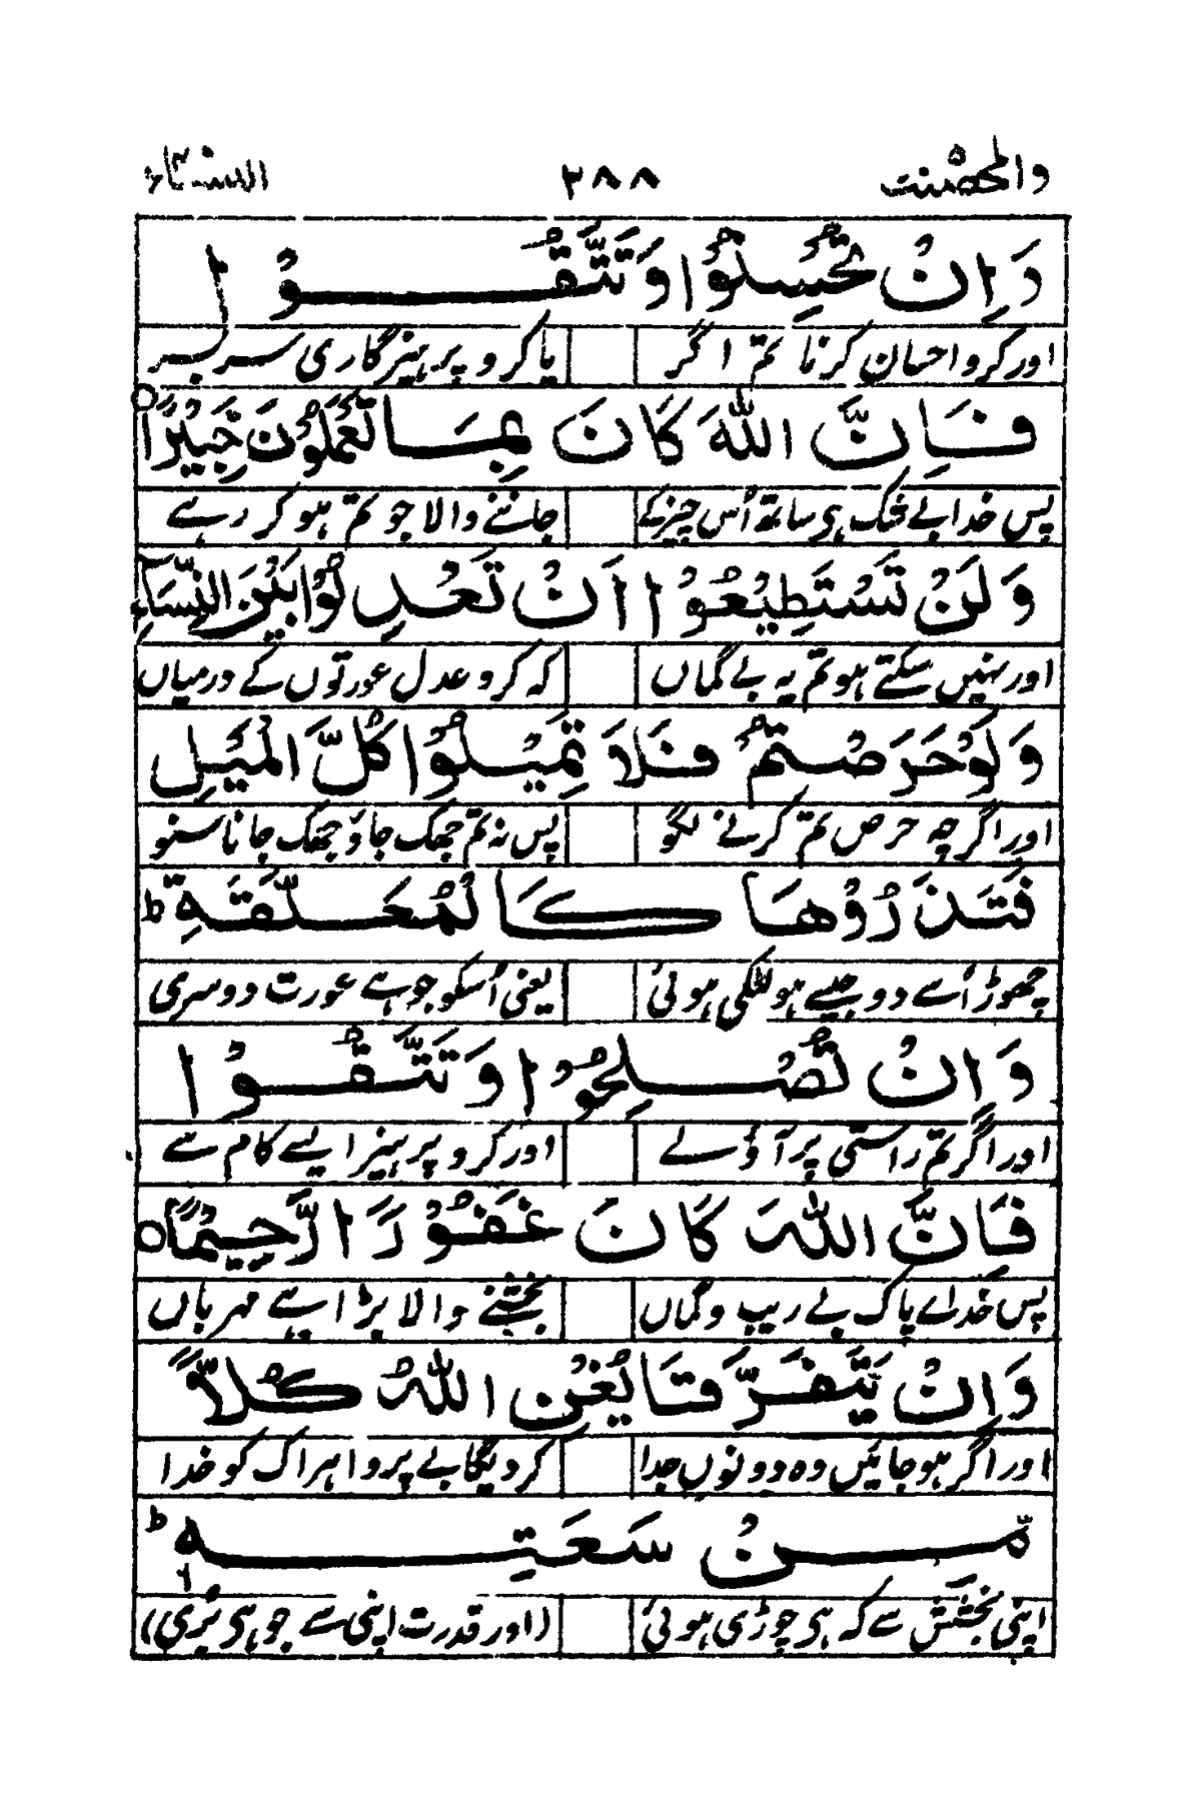 والمحصنٰت ٢٨٨ النسآء٤
وَاِنْ تُحْسِنُوْا وَتَتَّقُوْا
اور کرو احسان کرنا تم اگر یا کرو پرہیزگاری سربسر
فَاِنَّ اللّٰهَ كَانَ بِمَا تَعْمَلُوْنَ خَبِيْرًا ○
پس خدا بے شک ہی ساتھ اُس چیز کے جاننے والا جو تم ہو کر رہے
وَلَنْ تَسْتَطِيْعُوْا اَنْ تَعْدِلُوْا بَيْنَ النِّسَآءِ
اور نہیں سکتے ہو تم یہ بے گماں کہ کرو عدل عورتوں کے درمیاں
وَلَوْ حَرَصْتُمْ فَلَا تَمِيْلُوْا كُلَّ الْمَيْلِ
اور اگرچہ حرص تم کرنے لگو پس نہ تم جھک جاؤ جھک جانا سنو
فَتَذَرُوْهَا كَالْمُعَلَّقَةِ ؕ
چھوڑ اُسے دو جیسے ہو لٹکی ہوئی یعنی اُسکو جو ہے عورت دوسری
وَاِنْ تُصْلِحُوْا وَتَتَّقُوْا
اور اگر تم راستی پر آؤ لے اور کرو پرہیز ایسے کام سے
فَاِنَّ اللّٰهَ كَانَ غَفُوْرًا رَّحِيْمًا ○
پس خداے پاک بے ریب و گماں بخشنے والا بڑا ہے مہرباں
وَاِنْ يَّتَفَرَّقَا يُغْنِ اللّٰهُ كُلًّا
اور اگر ہو جائیں وہ دونوں جدا کر دیگا بے پروا ہراک کو خدا
مِّنْ سَعَتِهٖ ؕ
اپنی بخشش سے کہ ہی چوڑی ہوئی (اور قدرت اپنی سے جو ہی بڑی)